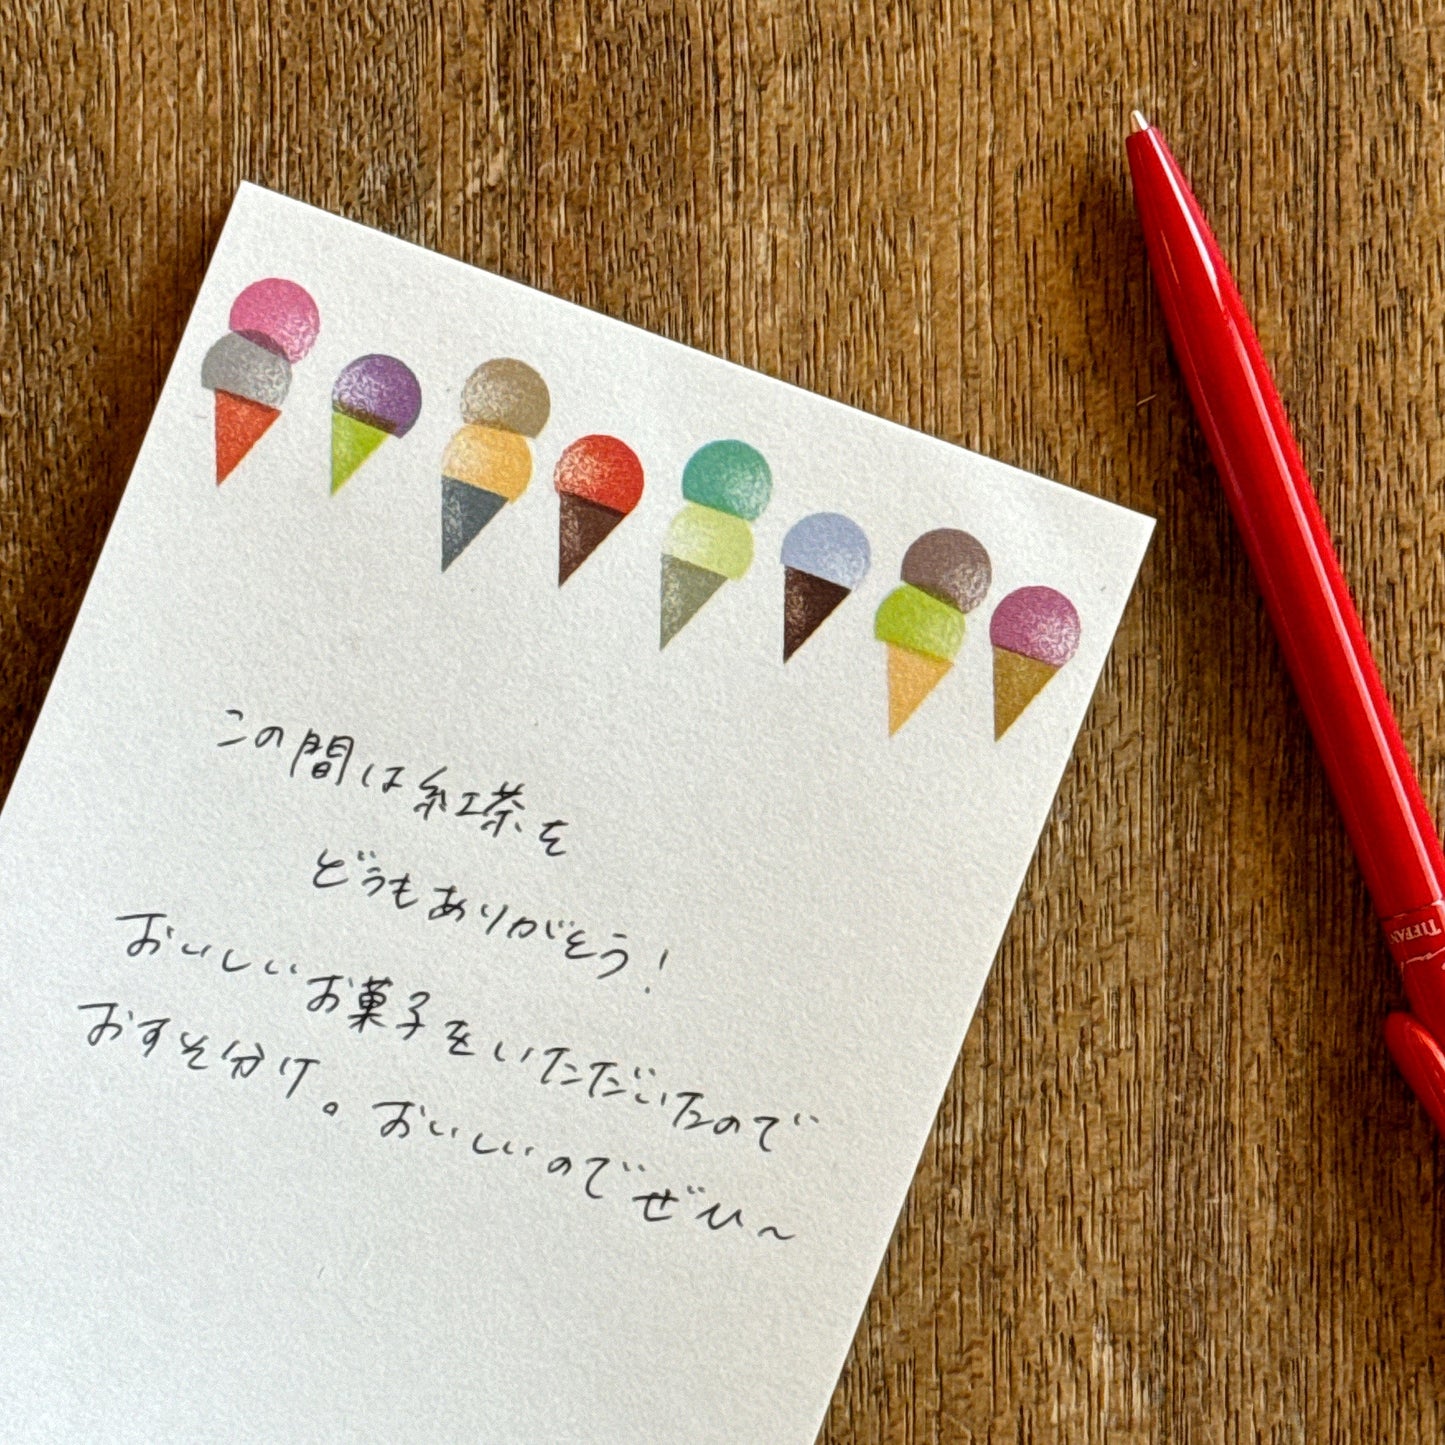 この間は紅茶を
どうもありがとう!
おいしいお菓子をいただいたので
おすそ分け。おいしいのでぜひ〜
TIFFAN